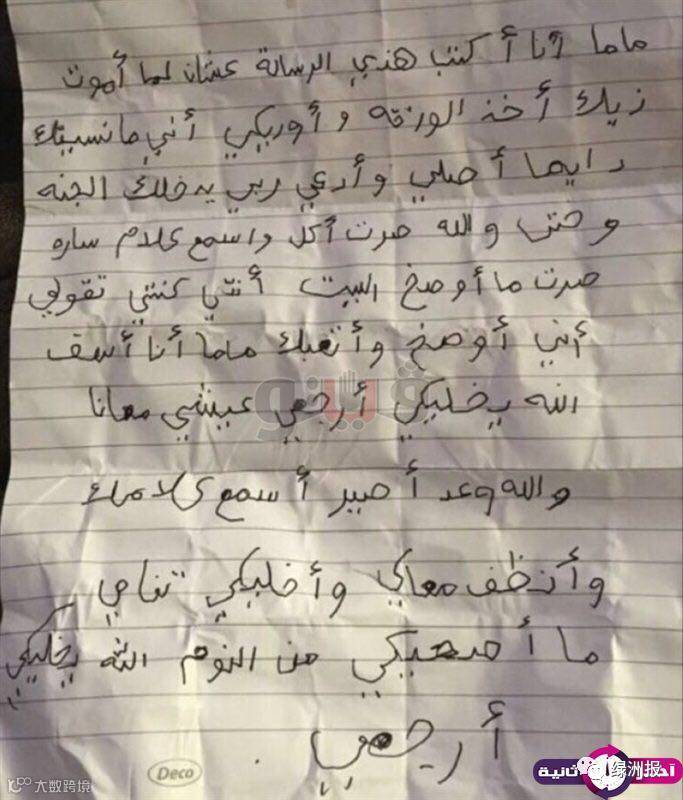 ماما أنا أكتب هذي الرسالة عشان لما أموت
زيك أخذ الورقه وأوريكي أني مانسيتك
دايما أصلي وأدعي ربي يدخلك الجنه
وحتى والله صرت أكل واسمع كلام ساره
صرت ما أوصخ البيت أنتي كنتي تقولي
أني أوصخ وأتعبك ماما أنا أسف
الله يخليكي أرجعي عيشي معانا
والله وعد أصير أسمع كلامك
وأنظف معاكي وأخليكي تنامي
ما أصحيكي من النوم الله يخليكي
أرجعي
Deco
大数跨境
绿洲报
ثانية